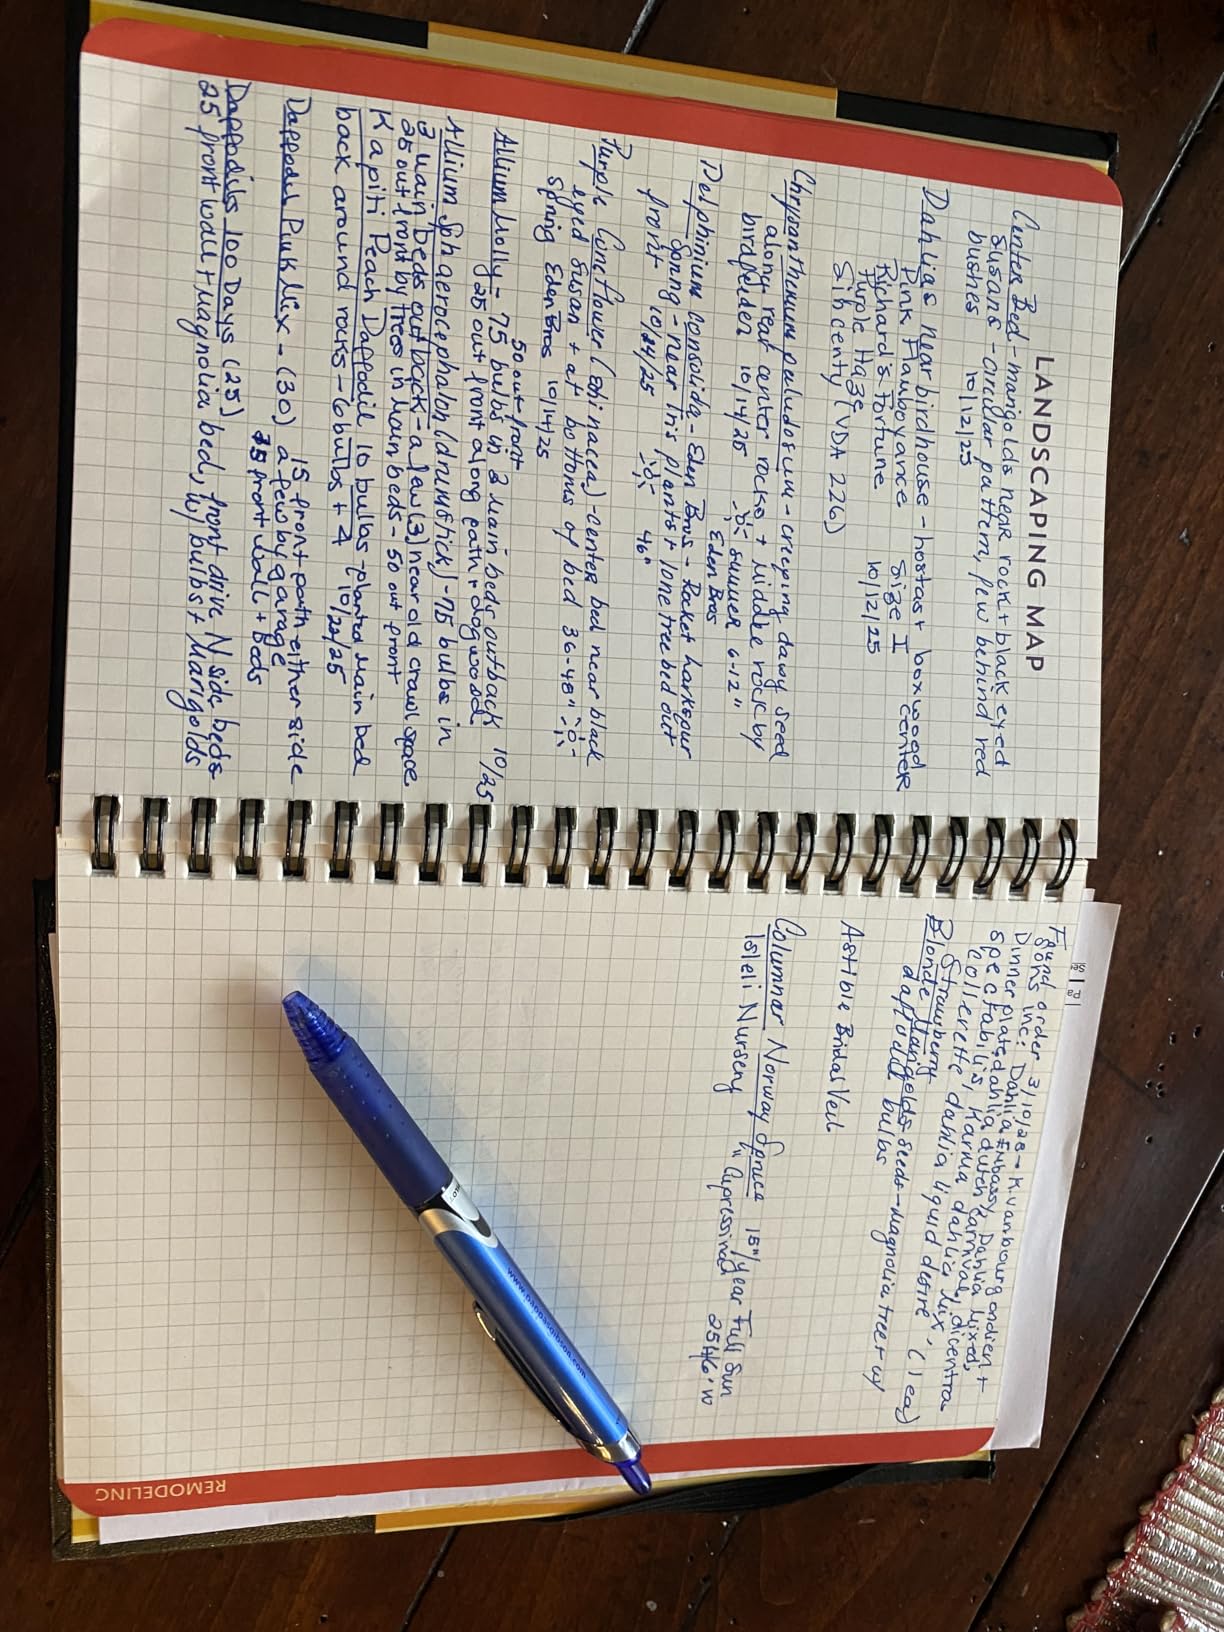 LANDSCAPING MAP
Center Bed - marigolds near rock + black eyed
Susans - circular pattern, few behind red
bushes 10/12/25
Dahlias near birdhouse - hostas + boxwood
Pink Flamboyance Size I center
Richard's Fortune
Purple Haze 10/12/25
Sincenty (VDA 226)
Chrysanthemum paludosum - creeping daisy seed
along rear center rocks + middle rock by
birdfeeder 10/14/25 summer 6-12"
Eden Bros
Delphinium Consolida - Eden Bros - Rocket Larkspur
Spring - near Iris plants + lone tree bed out
front 10/24/25 46"
Purple Coneflower (echinacea) - center bed near black
eyed Susan + at bottoms of bed 36-48"
Spring Eden Bros 10/14/25
50 out front
Allium Molly - 75 bulbs in 3 main beds outback 10/25
25 out front along path + dogwood
Allium Sphaerocephalon (drumstick) - 75 bulbs in
3 main beds out back - a few (3) near old crawl space
25 out front by trees in main beds - 50 out front
Kapiti Peach Daffodil 10 bulbs - planted main bed
back around rocks - 6 bulbs + 7 10/22/25
Daffodil Pink Mix - (30) 15 front path either side
a few by garage
35 front wall + beds
Daffodils 100 Days (25)
25 front wall + magnolia bed, front drive N side beds
w/ bulbs + Marigolds
Found order 3/10/28 - K. vanbourgondien +
sons inc: Dahlia Embassy, Dahlia Mixed,
Dinnerplate dahlia dutch carnival, dicentra
spectabilis, Karma dahlia mix,
collerette dahlia liquid desire, (1 ea)
Strawberry
Blonde Marigolds seeds - magnolia tree + w/
daffodil bulbs
Astible Bridal Veil
Columnar Norway Spruce 15"/year Full Sun
Iseli Nursery "Cupressina" 25H/6'W
PILOT
www.pappasgibson.com
REMODELING